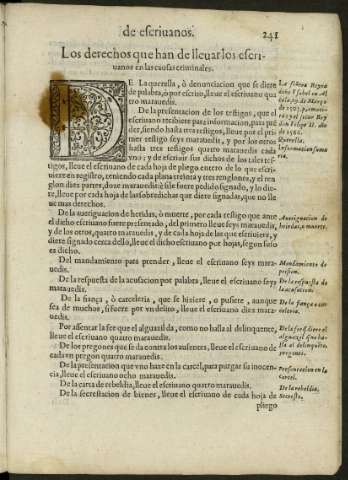 de escriuanos. 241
Los derechos que han de lleuar los escri-
uanos en las causas criminales.
DE La querella, ò denunciacion que se diere
de palabra, ò por escrito, lleue el escriuano qua
tro marauedis.
De la presentacion de los testigos, que el
escriuano recibiere para informacion, para pué
der, siendo hasta tres testigos, lleue por el pri
mer testigo seys marauedis, y por los otros
hasta tres testigos quatro marauedis cada
vno: y de escriuir sus dichos de los tales tes-
tigos, lleue el escriuano de cada hoja de pliego entero de lo que escri-
uiere en registro, teniendo cada plana treinta y tres renglones, y el ren
glon diez partes, doze marauedis: è si le fuere pedido signado, y lo die-
re, lleue por cada hoja de las sobredichas que diere signadas, que no lle
ue mas derechos.
De la aueriguacion de heridas, ò muerte, por cada testigo que ante
el dicho escriuano fuere presentado, del primero lleue seys marauedis,
y de los otros, quatro marauedis, y de cada hoja de las que escriuiere, y
diere signado cerca dello, lleue el dicho escriuano por hojas, segun suso
es dicho.
Del mandamiento para prender, lleue el escriuano seys mara-
uedis.
De la respuesta de la acusacion por palabra, lleue el escriuano seys
marauedis.
De la fiança, ò carceleria, que se hiziere, o pusiere, aunque
sea de muchos, si fuere por vn delito, lleue el escriuano diez mara-
uedis.
Por assentar la fee que el alguazil da, como no halla al delinquente,
lleue el escriuano quatro marauedis.
De los pregones que se da contra los ausentes, lleue el escriuano de
cada vn pregon quatro marauedis.
De la presentacion que vno haze en la carcel, para purgar su inocen-
cia, lleue el escriuano ocho marauedis.
De la carta de rebeldia, lleue el escriuano quatro marauedis.
De la secrestacion de bienes, lleue el escriuano de cada hoja de
pliego
La señora Reyna
doña Isabel en Al
Querella.
Informacion suma
ria.
Aueriguacion de
heridas, o muerte.
Mandamiento de
prision.
De la respuesta de
la acusacion.
De la fiança o car-
celeria.
De la fee q̃ diere el
alguazil que no ha-
lla el delinquẽte.
pregones.
Presentacion en la
carcel.
De la rebeldia.
Secresto.